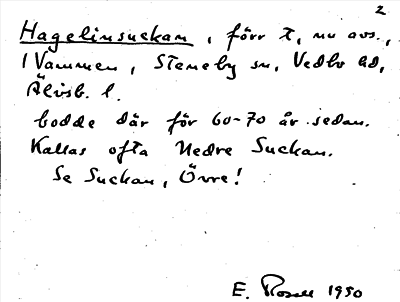 2
Hagelinsuckan, förr t, nu avs.,
i Vammen, Steneby sn, Vedbo hd,
Älvsb. l.
bodde där för 60-70 år sedan.
Kallas ofta Nedre Suckan.
Se Suckan, Övre!
E. Rosell 1950